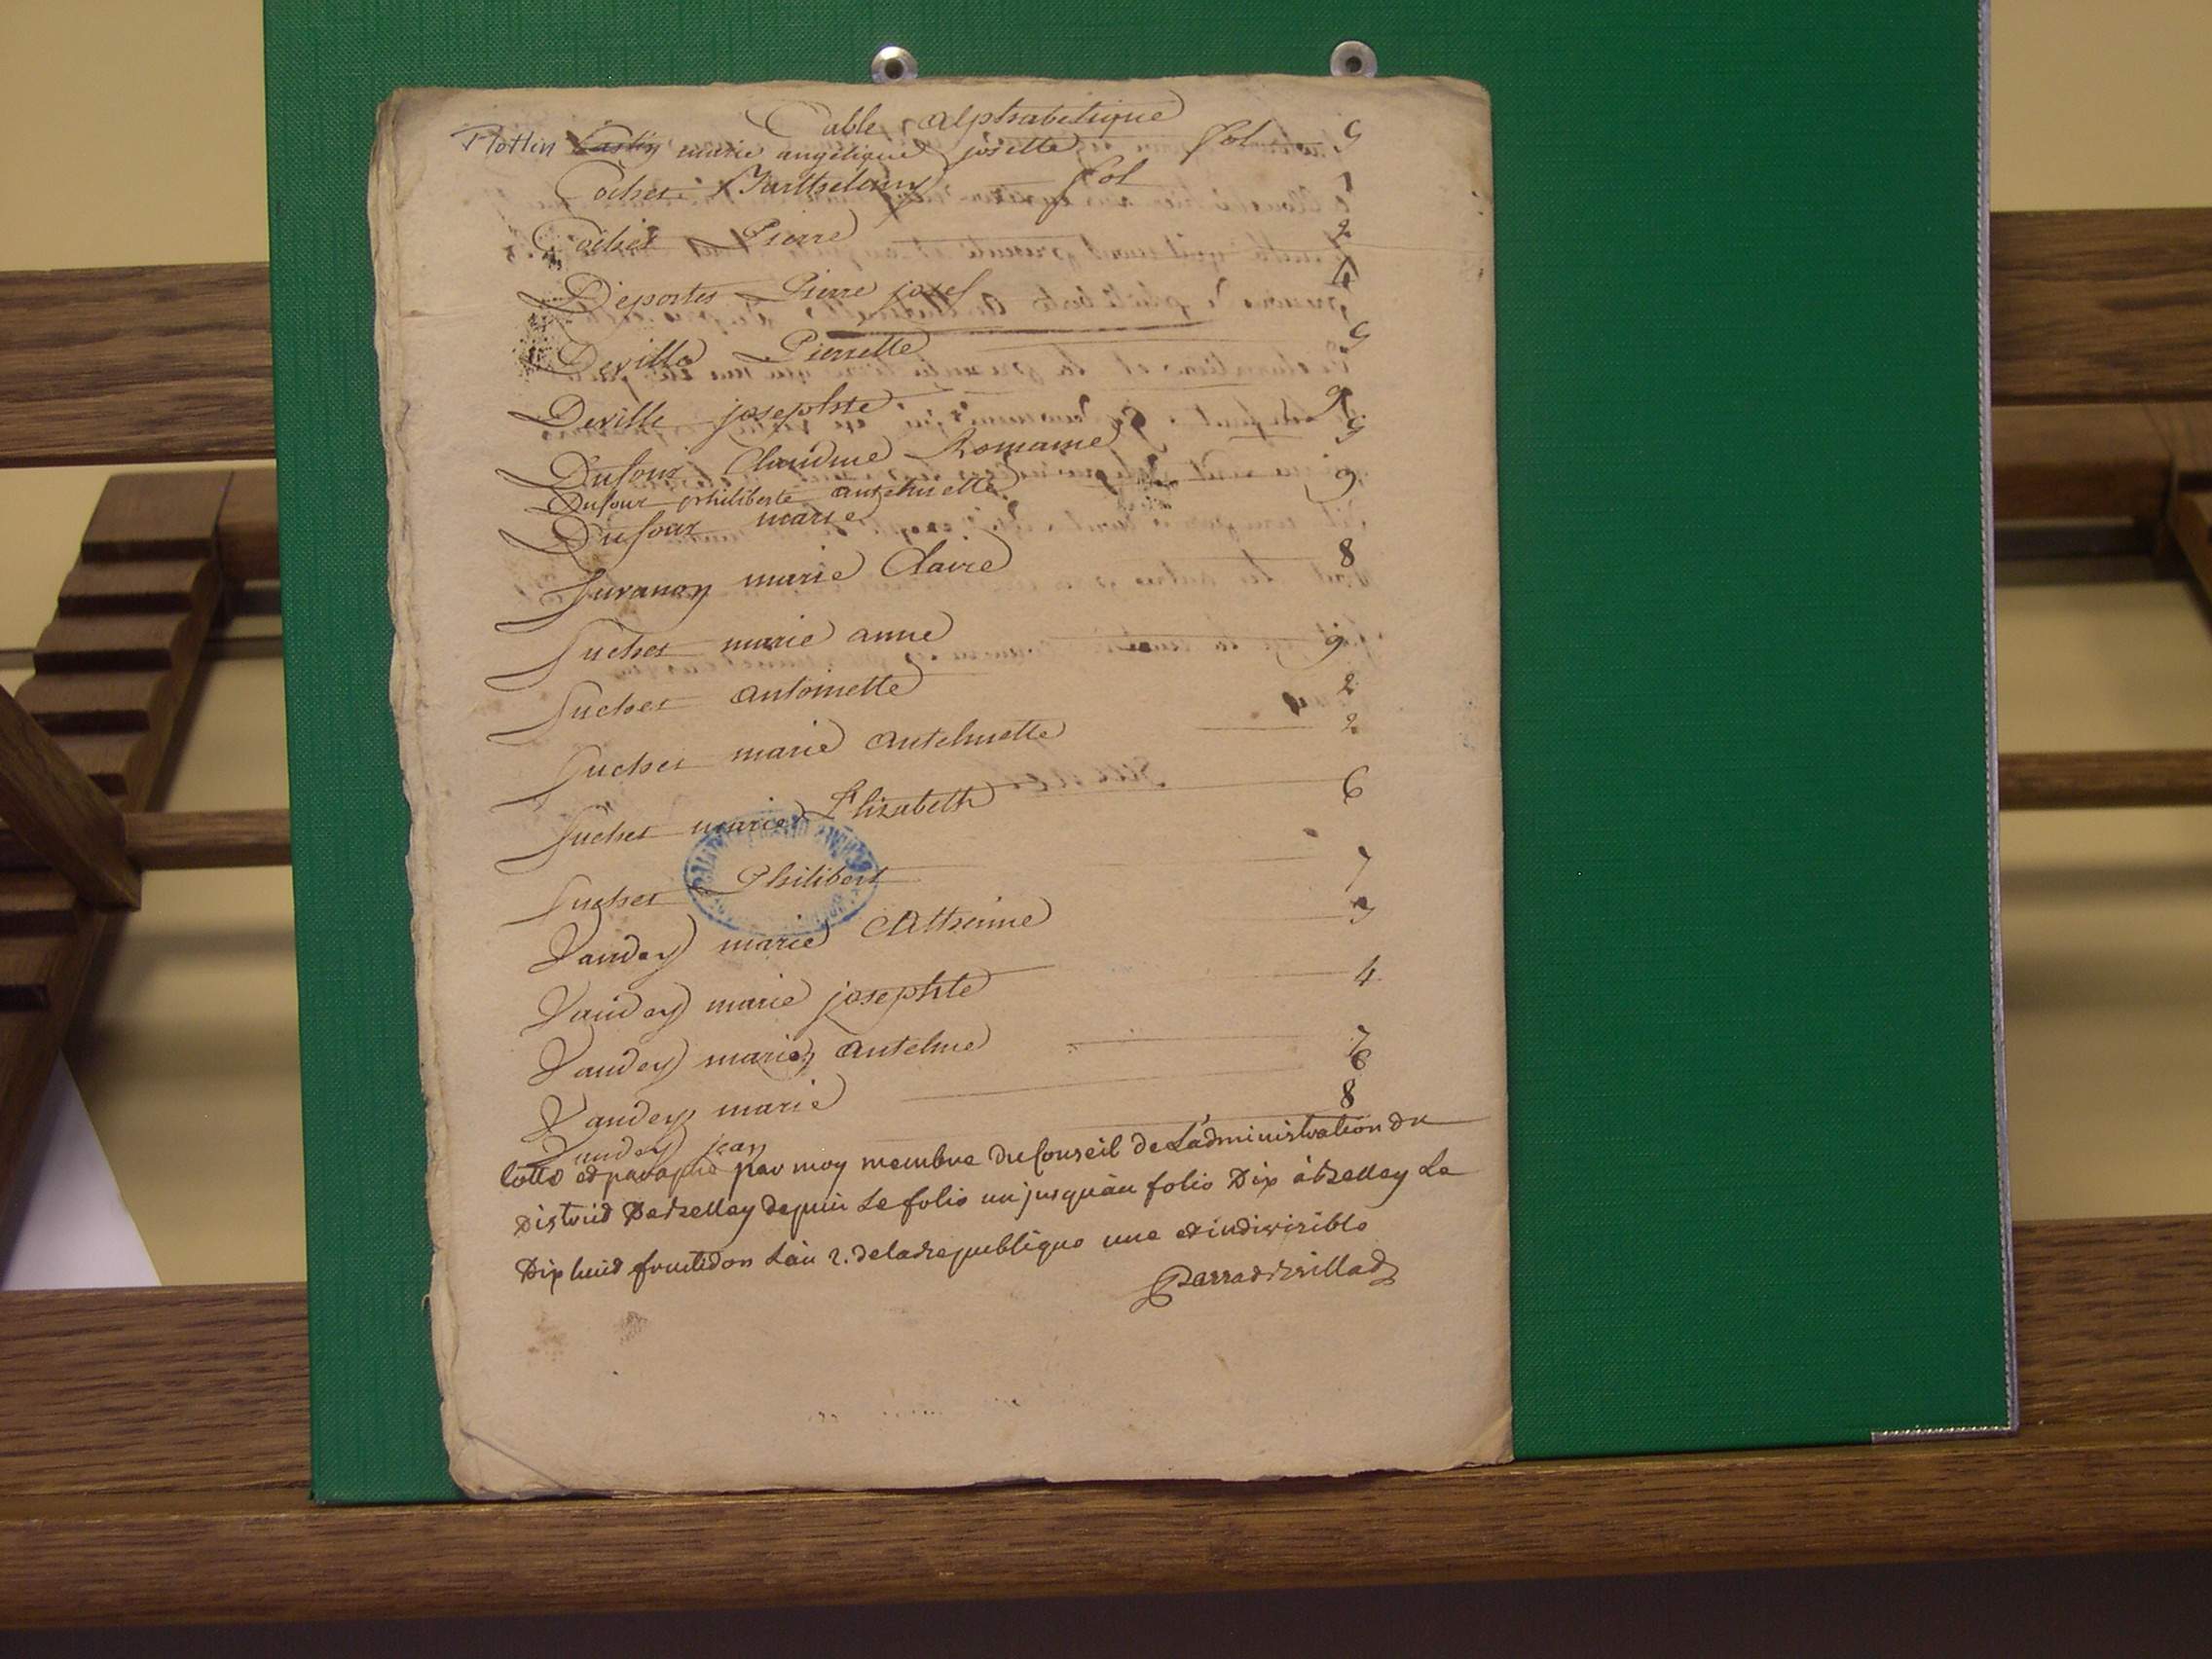 Table alphabetique
Flottin marie angelique josette fol 9
Cochet Barthelemy fol 1
Cochet Pierre 2
Deportes Pierre josef 4
Deville Pierrette 9
Deville josephte 9
Dufour Claudine Romaine 9
Dufour philiberte anthelmette 9
Dufour marie
Juvanon marie Claire 8
Suchet marie anne 9
Suchet antoinette 2
Suchet marie anthelmette 2
Suchet marie Elizabeth 6
Suchet Philibert 7
Vandey marie Catherine 3
Vandey marie josephte 4
Vandey marie antelme 7
Vandey marie 6
Vandey jean 8
Cotté et paraphé par moy membre du Conseil de L'administration du
District De belley depuis Le folio un jusqu'au folio Dix à belley Le
Dix huit fructidor L'an 2. de la republique une et indivisible